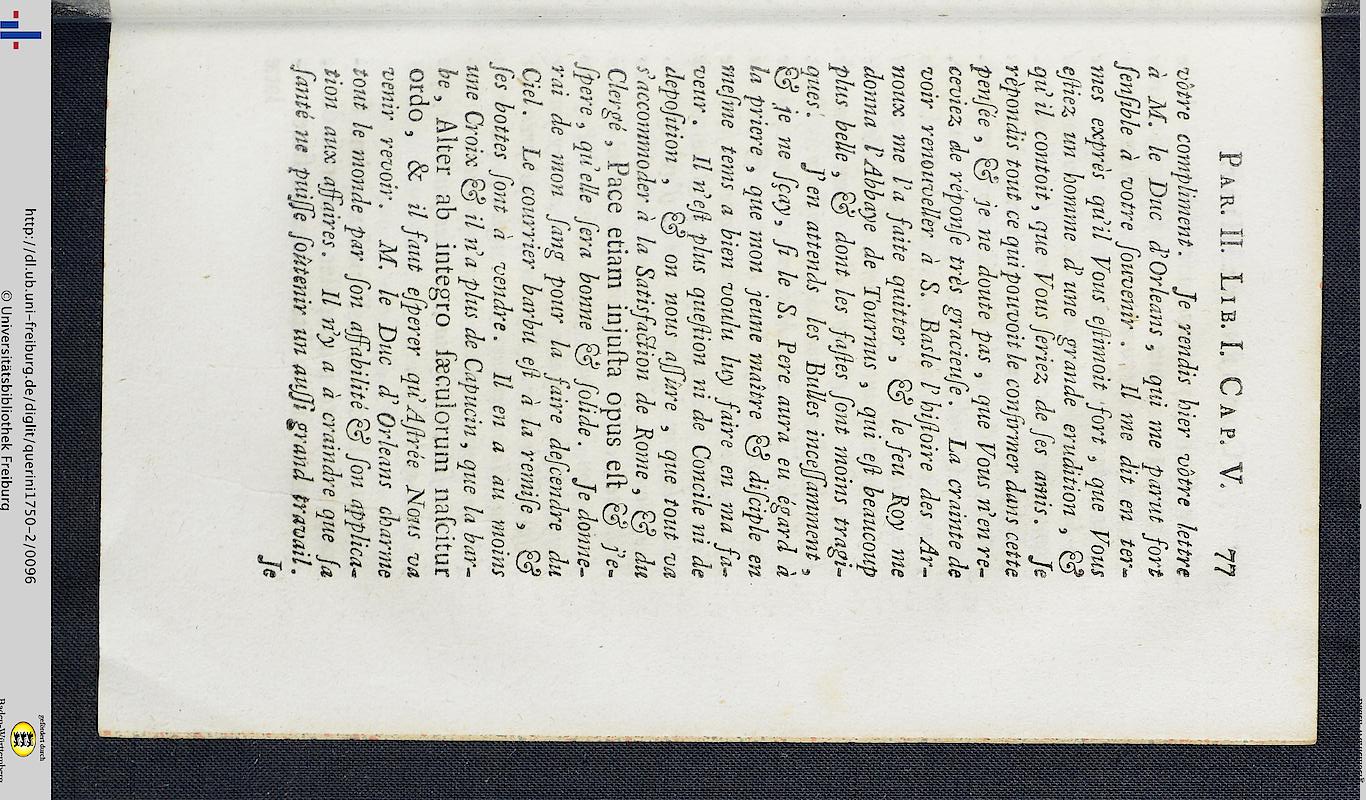 PAR. II. LIB. I. CAP. V. 77
vôtre compliment. Je rendis hier vôtre lettre
à M. le Duc d'Orleans, qui me parut fort
ſenſible à votre ſouvenir. Il me dit en ter-
mes exprès qu'il Vous eſtimoit fort, que Vous
eſtiez un homme d'une grande erudition, &
qu'il contoit, que Vous ſeriez de ſes amis. Je
répondis tout ce qui pouvoit le confirmer dans cette
penſée, & je ne doute pas, que Vous n'en re-
ceviez de réponſe très gracieuſe. La crainte de
voir renouveller à S. Basle l'hiſtoire des Ar-
noux me l'a faite quitter, & le feu Roy me
donna l'Abbaye de Tournus, qui eſt beaucoup
plus belle, & dont les faſtes ſont moins tragi-
ques. J'en attends les Bulles inceſſamment,
& je ne ſçay, ſi le S. Pere aura eu égard à
la priere, que mon jeune maître & diſciple en
meſme tems a bien voulu luy faire en ma fa-
veur. Il n'eſt plus queſtion ni de Concile ni de
depoſition, & on nous aſſûre, que tout va
s'accommoder à la Satisfaction de Rome, & du
Clergé, Pace etiam injuſta opus eſt & j'e-
ſpere, qu'elle ſera bonne & ſolide. Je donne-
rai de mon ſang pour la faire deſcendre du
Ciel. Le courrier barbu eſt à la remiſe, &
ſes bottes ſont à vendre. Il en a au moins
une Croix & il n'a plus de Capucin, que la bar-
be, Alter ab integro ſæculorum naſcitur
ordo, & il faut eſperer qu'Aſtrée Nous va
venir revoir. M. le Duc d'Orleans charme
tout le monde par ſon affabilité & ſon applica-
tion aux affaires. Il n'y a à craindre que ſa
ſanté ne puiſſe ſoûtenir un auſſi grand travail.
Je
http://dl.ub.uni-freiburg.de/diglit/querini1750-2/0096
© Universitätsbibliothek Freiburg
gefördert durch
Baden-Württemberg